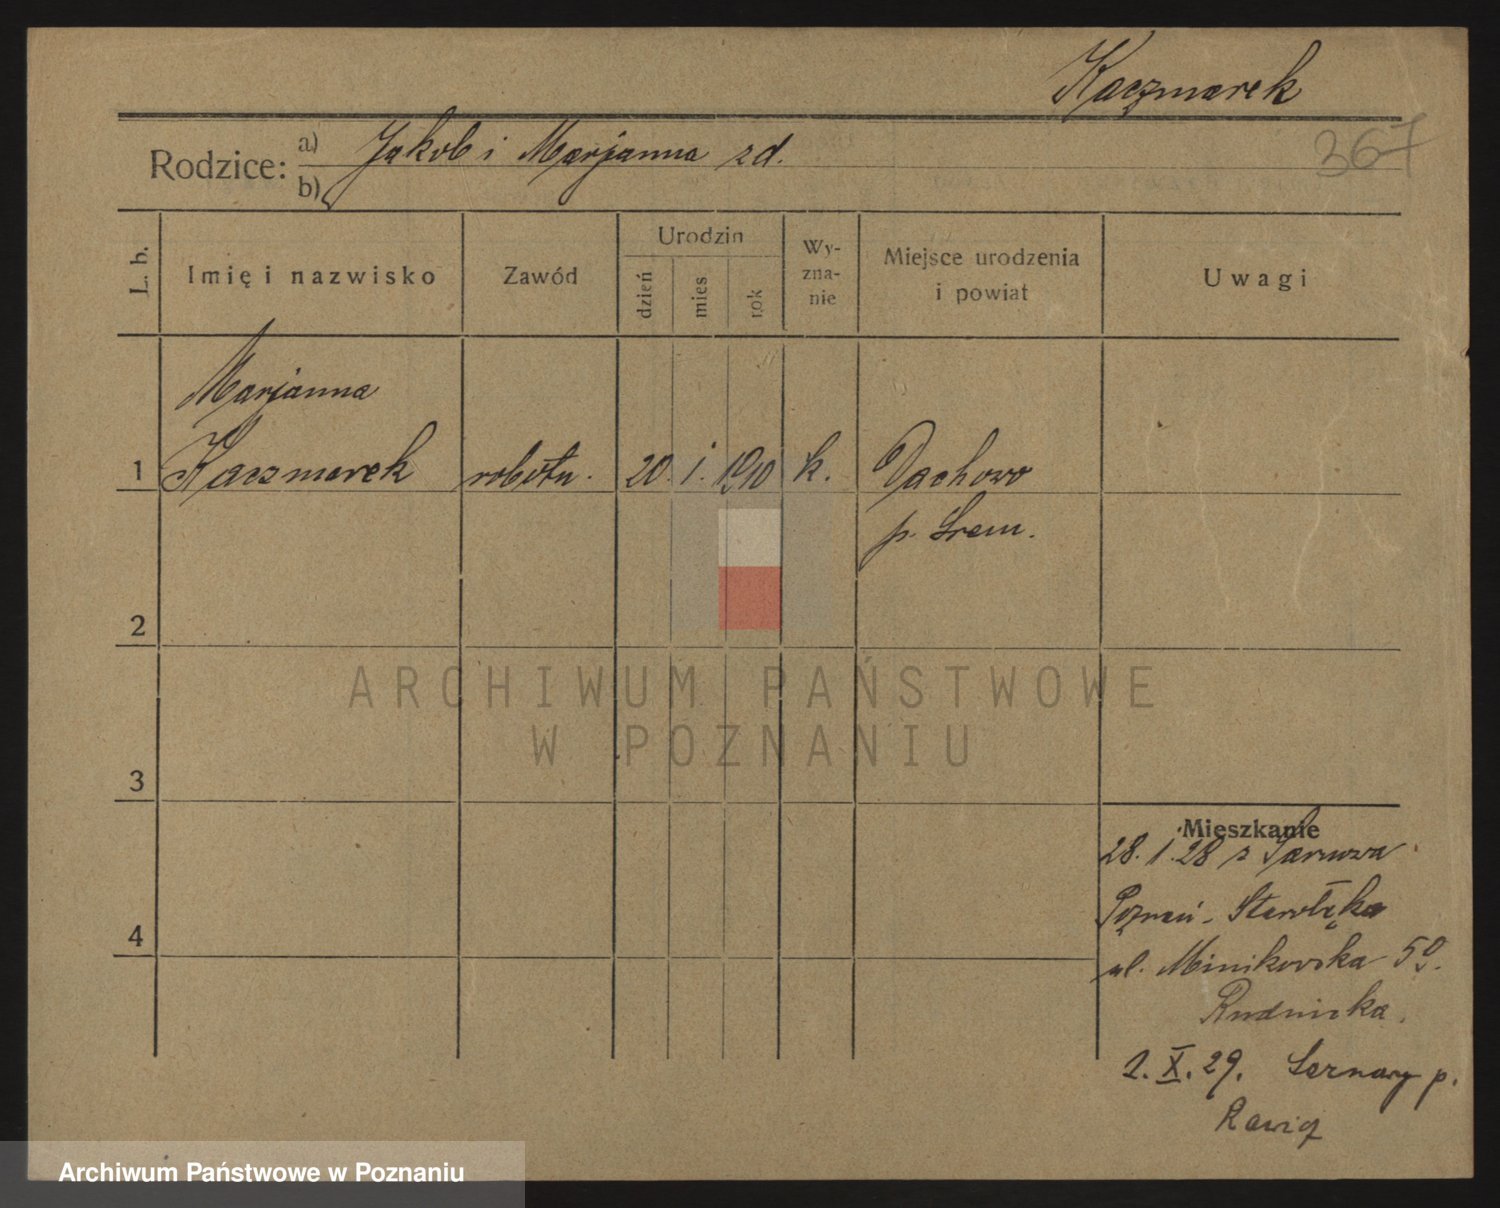 Kaczmarek
367
Rodzice: a) Jakob i Marjanna zd.
b)
L. b. Imię i nazwisko Zawód Urodzin dzień mies rok Wyznanie Miejsce urodzenia i powiat Uwagi
Marjanna
1 Kaczmarek robotn. 20. 1. 1910 k. Dachowo
p. Śrem.
2
ARCHIWUM PAŃSTWOWE
W POZNANIU
3
Mieszkanie
28. 1. 28 z
4 Poznań - Starołęka
ul. Minikowska 50.
Rudnicka.
2. X. 29. p.
Archiwum Państwowe w Poznaniu